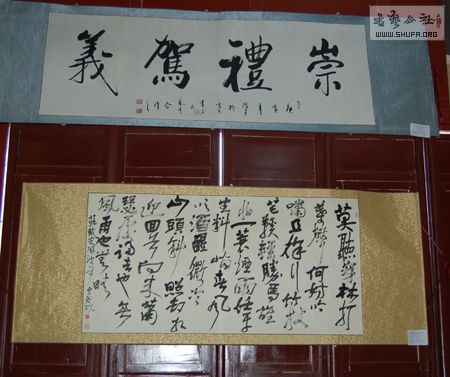 書藝公社
WWW.SHUFA.ORG
崇禮駕義
莫聽穿林打
葉聲何妨吟
嘯且徐行竹杖
芒鞵輕勝馬誰
怕一蓑煙雨任平
生料峭春風
吹酒醒微冷
山頭斜照却相
迎回首向來蕭
瑟處歸去也無
風雨也無晴
蘇軾定風波